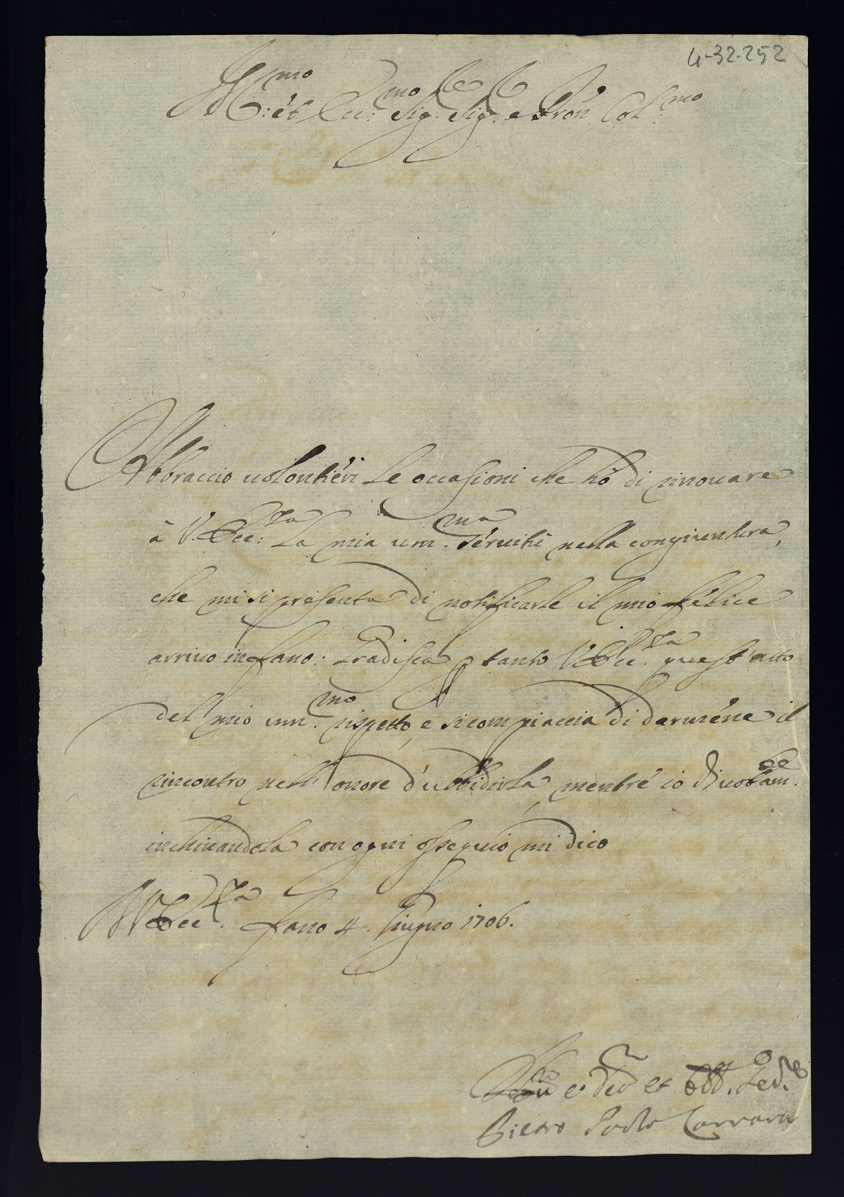 4-32-252
Ill:mo et Ecc:mo Sig:r Sig:r e Pron Col:mo
Abbraccio volontieri le occasioni che hò di rinovare
à V. Ecc:za la mia um:ma servitù nella congiuntura,
che mi si presenta di notificarle il mio felice
arrivo in Fano: Gradisca tanto V. Ecc:za quest'atto
del mio um:mo rispetto, e si compiaccia di darmene il
rincontro nell'onore d'ubbidirla, mentre io
inchinandola con ogni ossequio mi dico
Di V. Ecc:za Fano 4. Giugno 1706.
Pietro Paolo Carrara